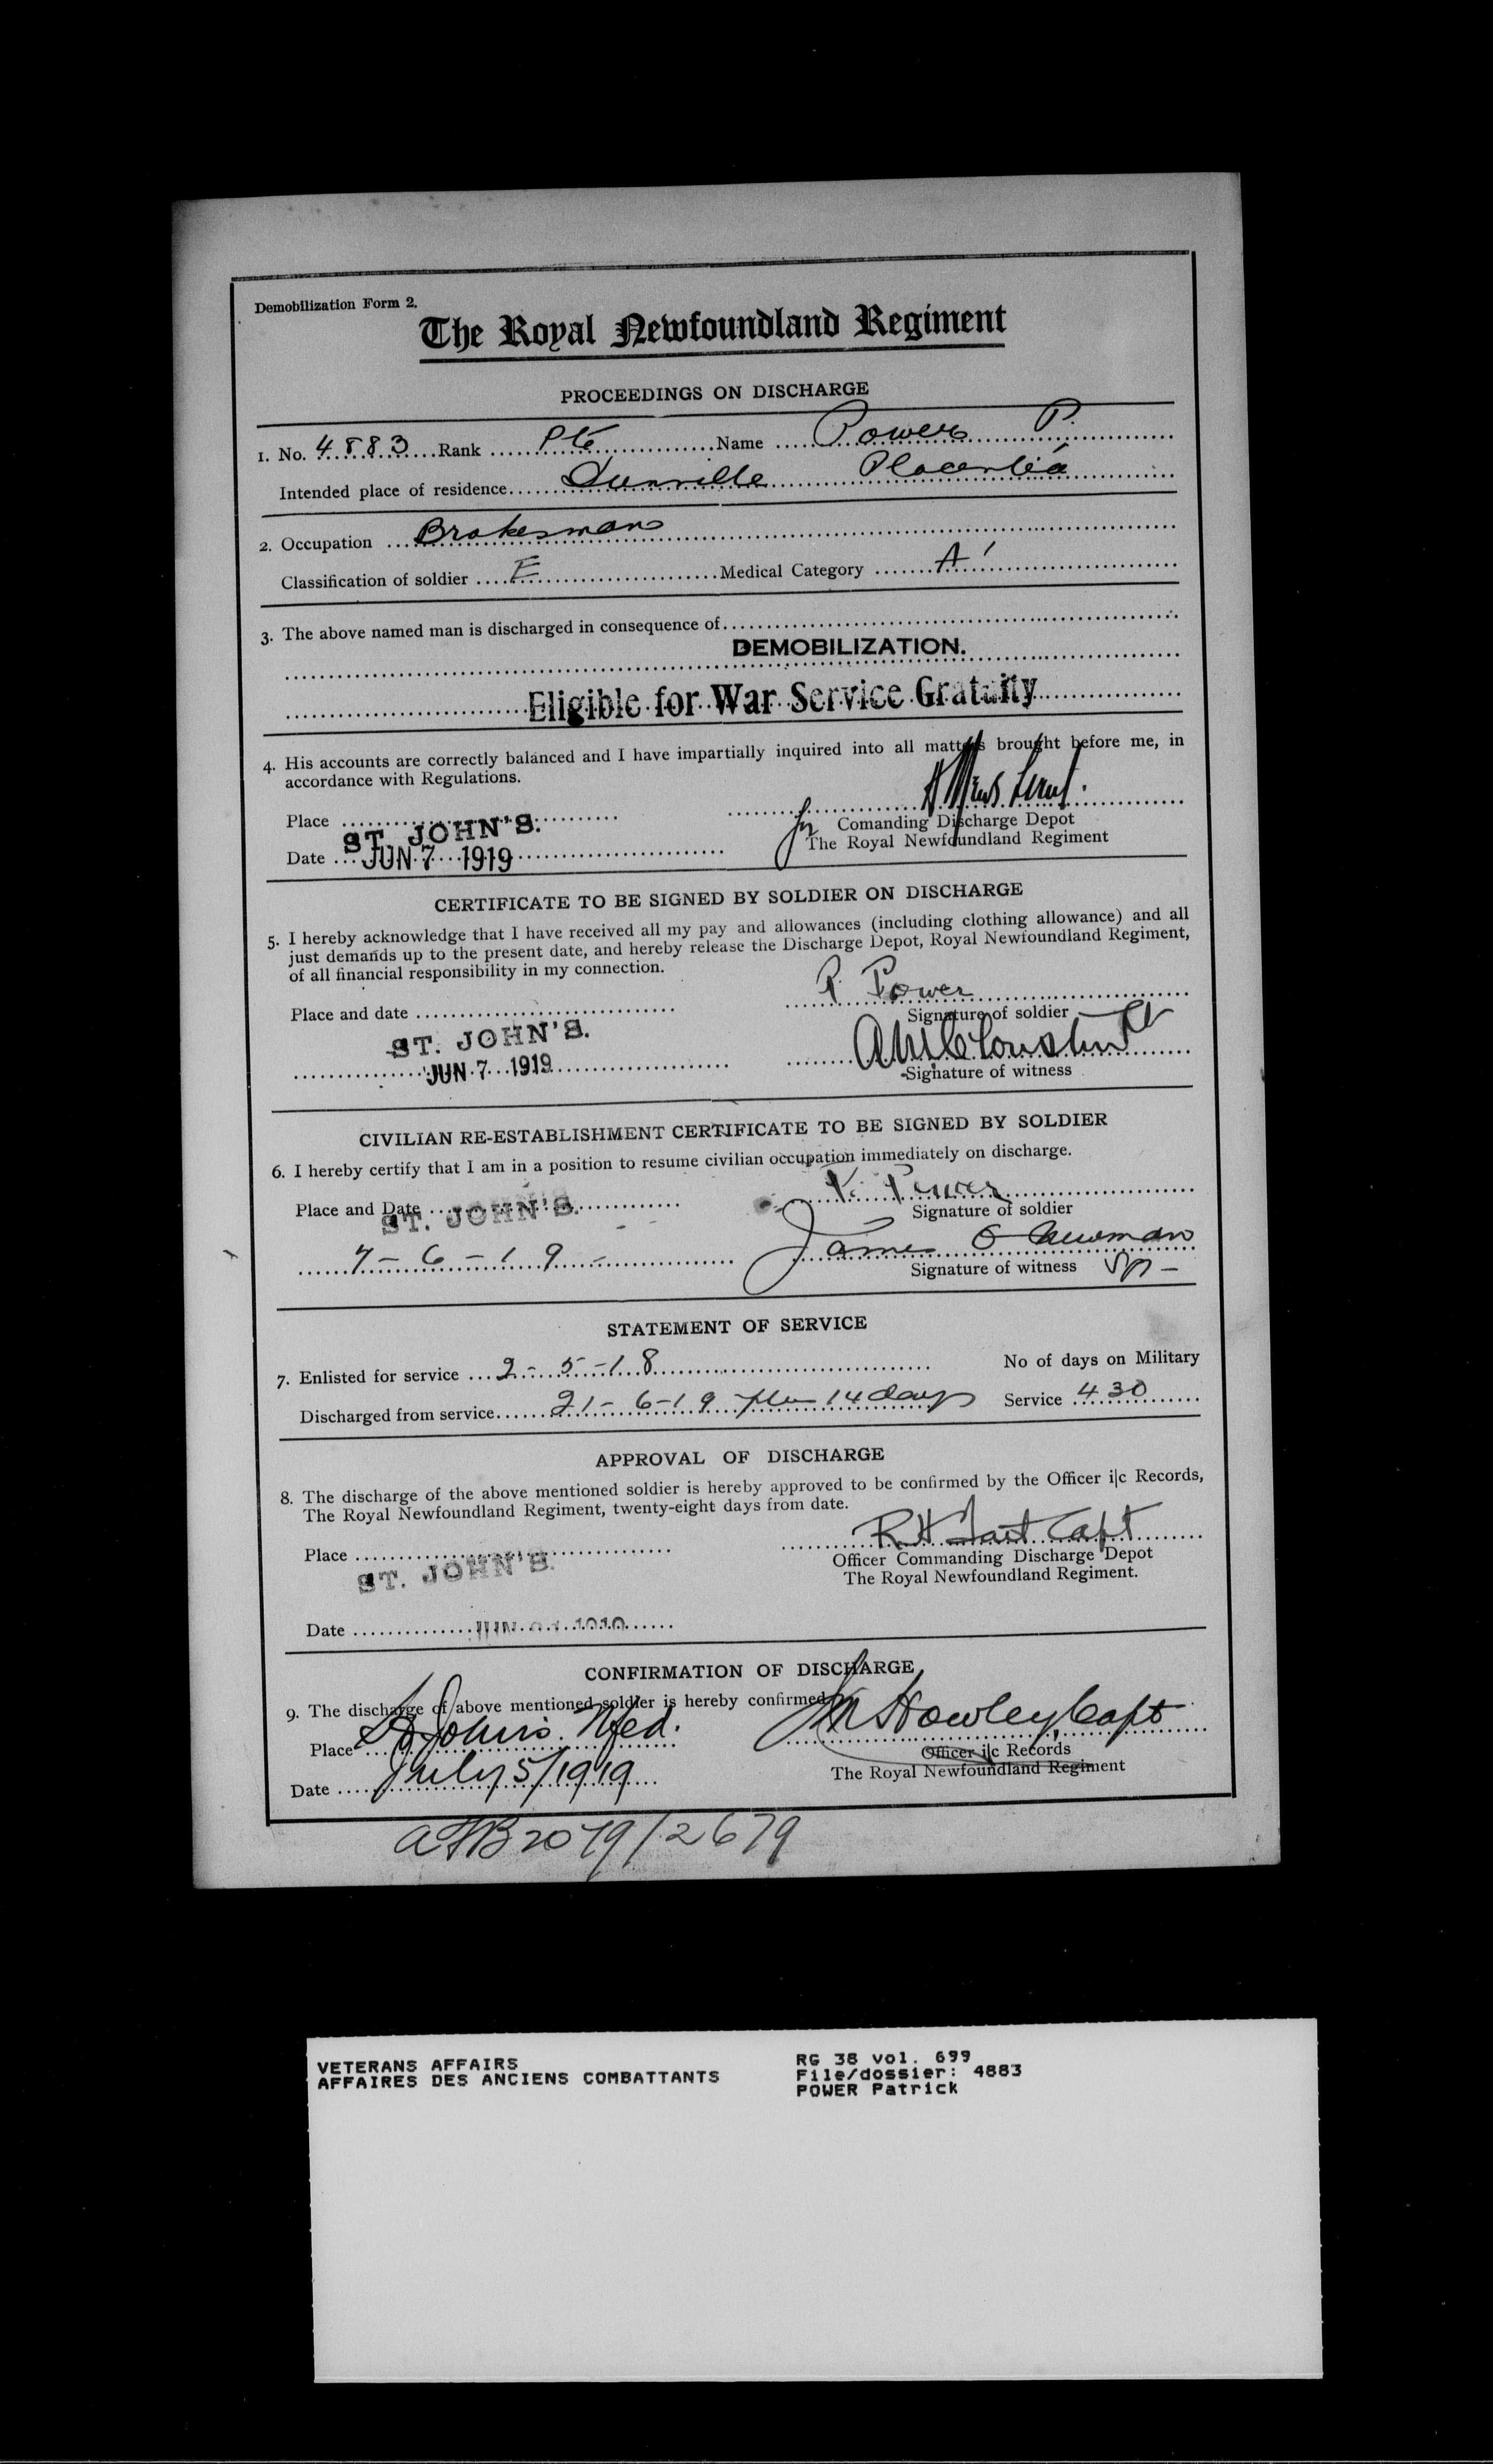 Demobilization Form 2.
The Royal Newfoundland Regiment
PROCEEDINGS ON DISCHARGE
1. No. 4883 Rank Pte Name Power P.
Intended place of residence Dunville Placentia
2. Occupation Brakesman
Classification of soldier E Medical Category A1
3. The above named man is discharged in consequence of
DEMOBILIZATION.
Eligible for War Service Gratuity
4. His accounts are correctly balanced and I have impartially inquired into all matters brought before me, in
accordance with Regulations.
Place ST. JOHN'S.
for Comanding Discharge Depot
Date JUN 7 1919
The Royal Newfoundland Regiment
CERTIFICATE TO BE SIGNED BY SOLDIER ON DISCHARGE
5. I hereby acknowledge that I have received all my pay and allowances (including clothing allowance) and all
just demands up to the present date, and hereby release the Discharge Depot, Royal Newfoundland Regiment,
of all financial responsibility in my connection.
P. Power
Place and date
Signature of soldier
ST. JOHN'S.
JUN 7 1919
Signature of witness
CIVILIAN RE-ESTABLISHMENT CERTIFICATE TO BE SIGNED BY SOLDIER
6. I hereby certify that I am in a position to resume civilian occupation immediately on discharge.
P. Power
Place and Date ST. JOHN'S.
Signature of soldier
7-6-19- James O Newman
Signature of witness
STATEMENT OF SERVICE
7. Enlisted for service 2-5-18 No of days on Military
Discharged from service 21-6-19 plus 14 days Service 430
APPROVAL OF DISCHARGE
8. The discharge of the above mentioned soldier is hereby approved to be confirmed by the Officer i|c Records,
The Royal Newfoundland Regiment, twenty-eight days from date.
R H Tait Capt
Place ST. JOHN'S.
Officer Commanding Discharge Depot
The Royal Newfoundland Regiment.
Date JUN 21 1919
CONFIRMATION OF DISCHARGE
9. The discharge of above mentioned soldier is hereby confirmed
Place St Johns Nfld. Howley Capt
Officer i|c Records
Date July 5/1919
The Royal Newfoundland Regiment
AFB 2079/2679
VETERANS AFFAIRS
AFFAIRES DES ANCIENS COMBATTANTS
RG 38 vol. 699
File/dossier: 4883
POWER Patrick